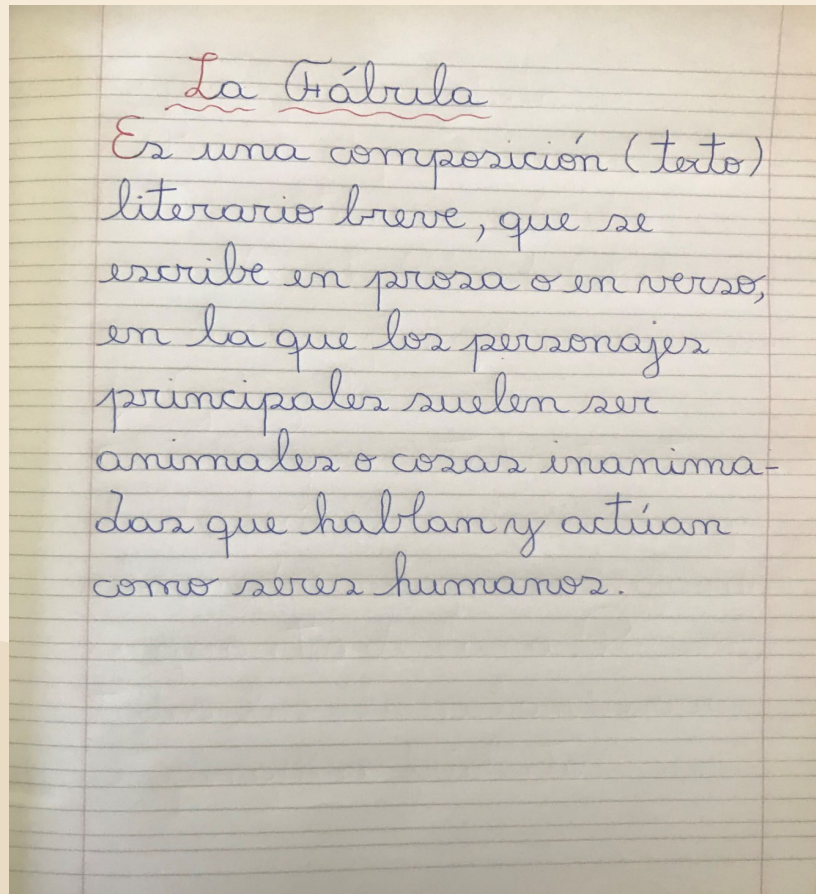 La Fábula
Es una composición (texto)
literario breve, que se
escribe en prosa o en verso,
en la que los personajes
principales suelen ser
animales o cosas inanima-
das que hablan y actúan
como seres humanos.